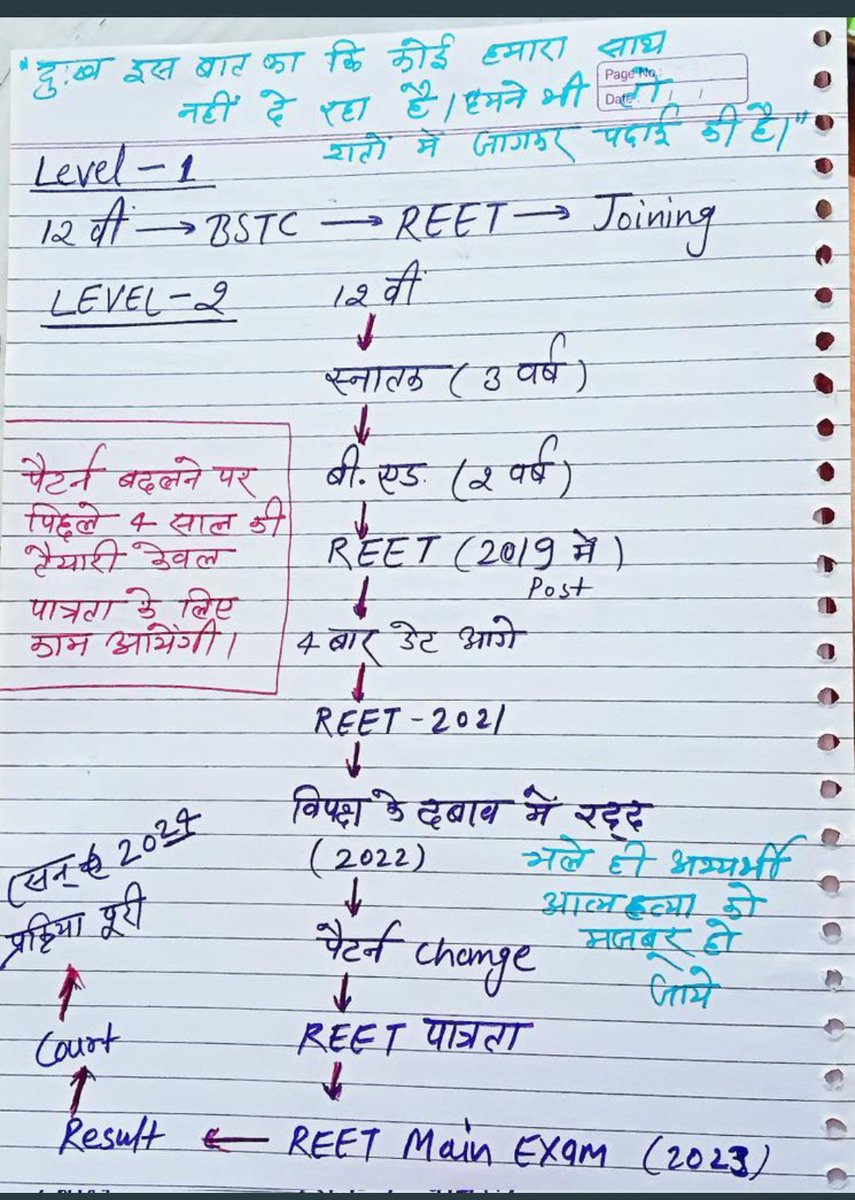 "दुःख इस बात का कि कोई हमारा साथ
नहीं दे रहा है। हमने भी तो
रातों में जागकर पढाई की है।"
Page No.
Date / /
Level - 1
12 वीं → BSTC → REET → Joining
LEVEL - 2
12 वीं
↓
स्नातक (3 वर्ष)
↓
बी. एड. (2 वर्ष)
↓
REET (2019 में)
Post
↓
4 बार डेट आगे
↓
REET - 2021
↓
विपक्ष के दबाव में रद्द
(2022)
↓
पैटर्न change
↓
REET पात्रता
↓
REET Main Exam (2023)
←
Result
↑
Court
↑
प्रक्रिया पूरी
(सन् 2024
पैटर्न बदलने पर
पिछले 4 साल की
तैयारी केवल
पात्रता के लिए
काम आयेंगी।
भले ही अभ्यर्थी
आत्महत्या को
मजबूर हो
जाये